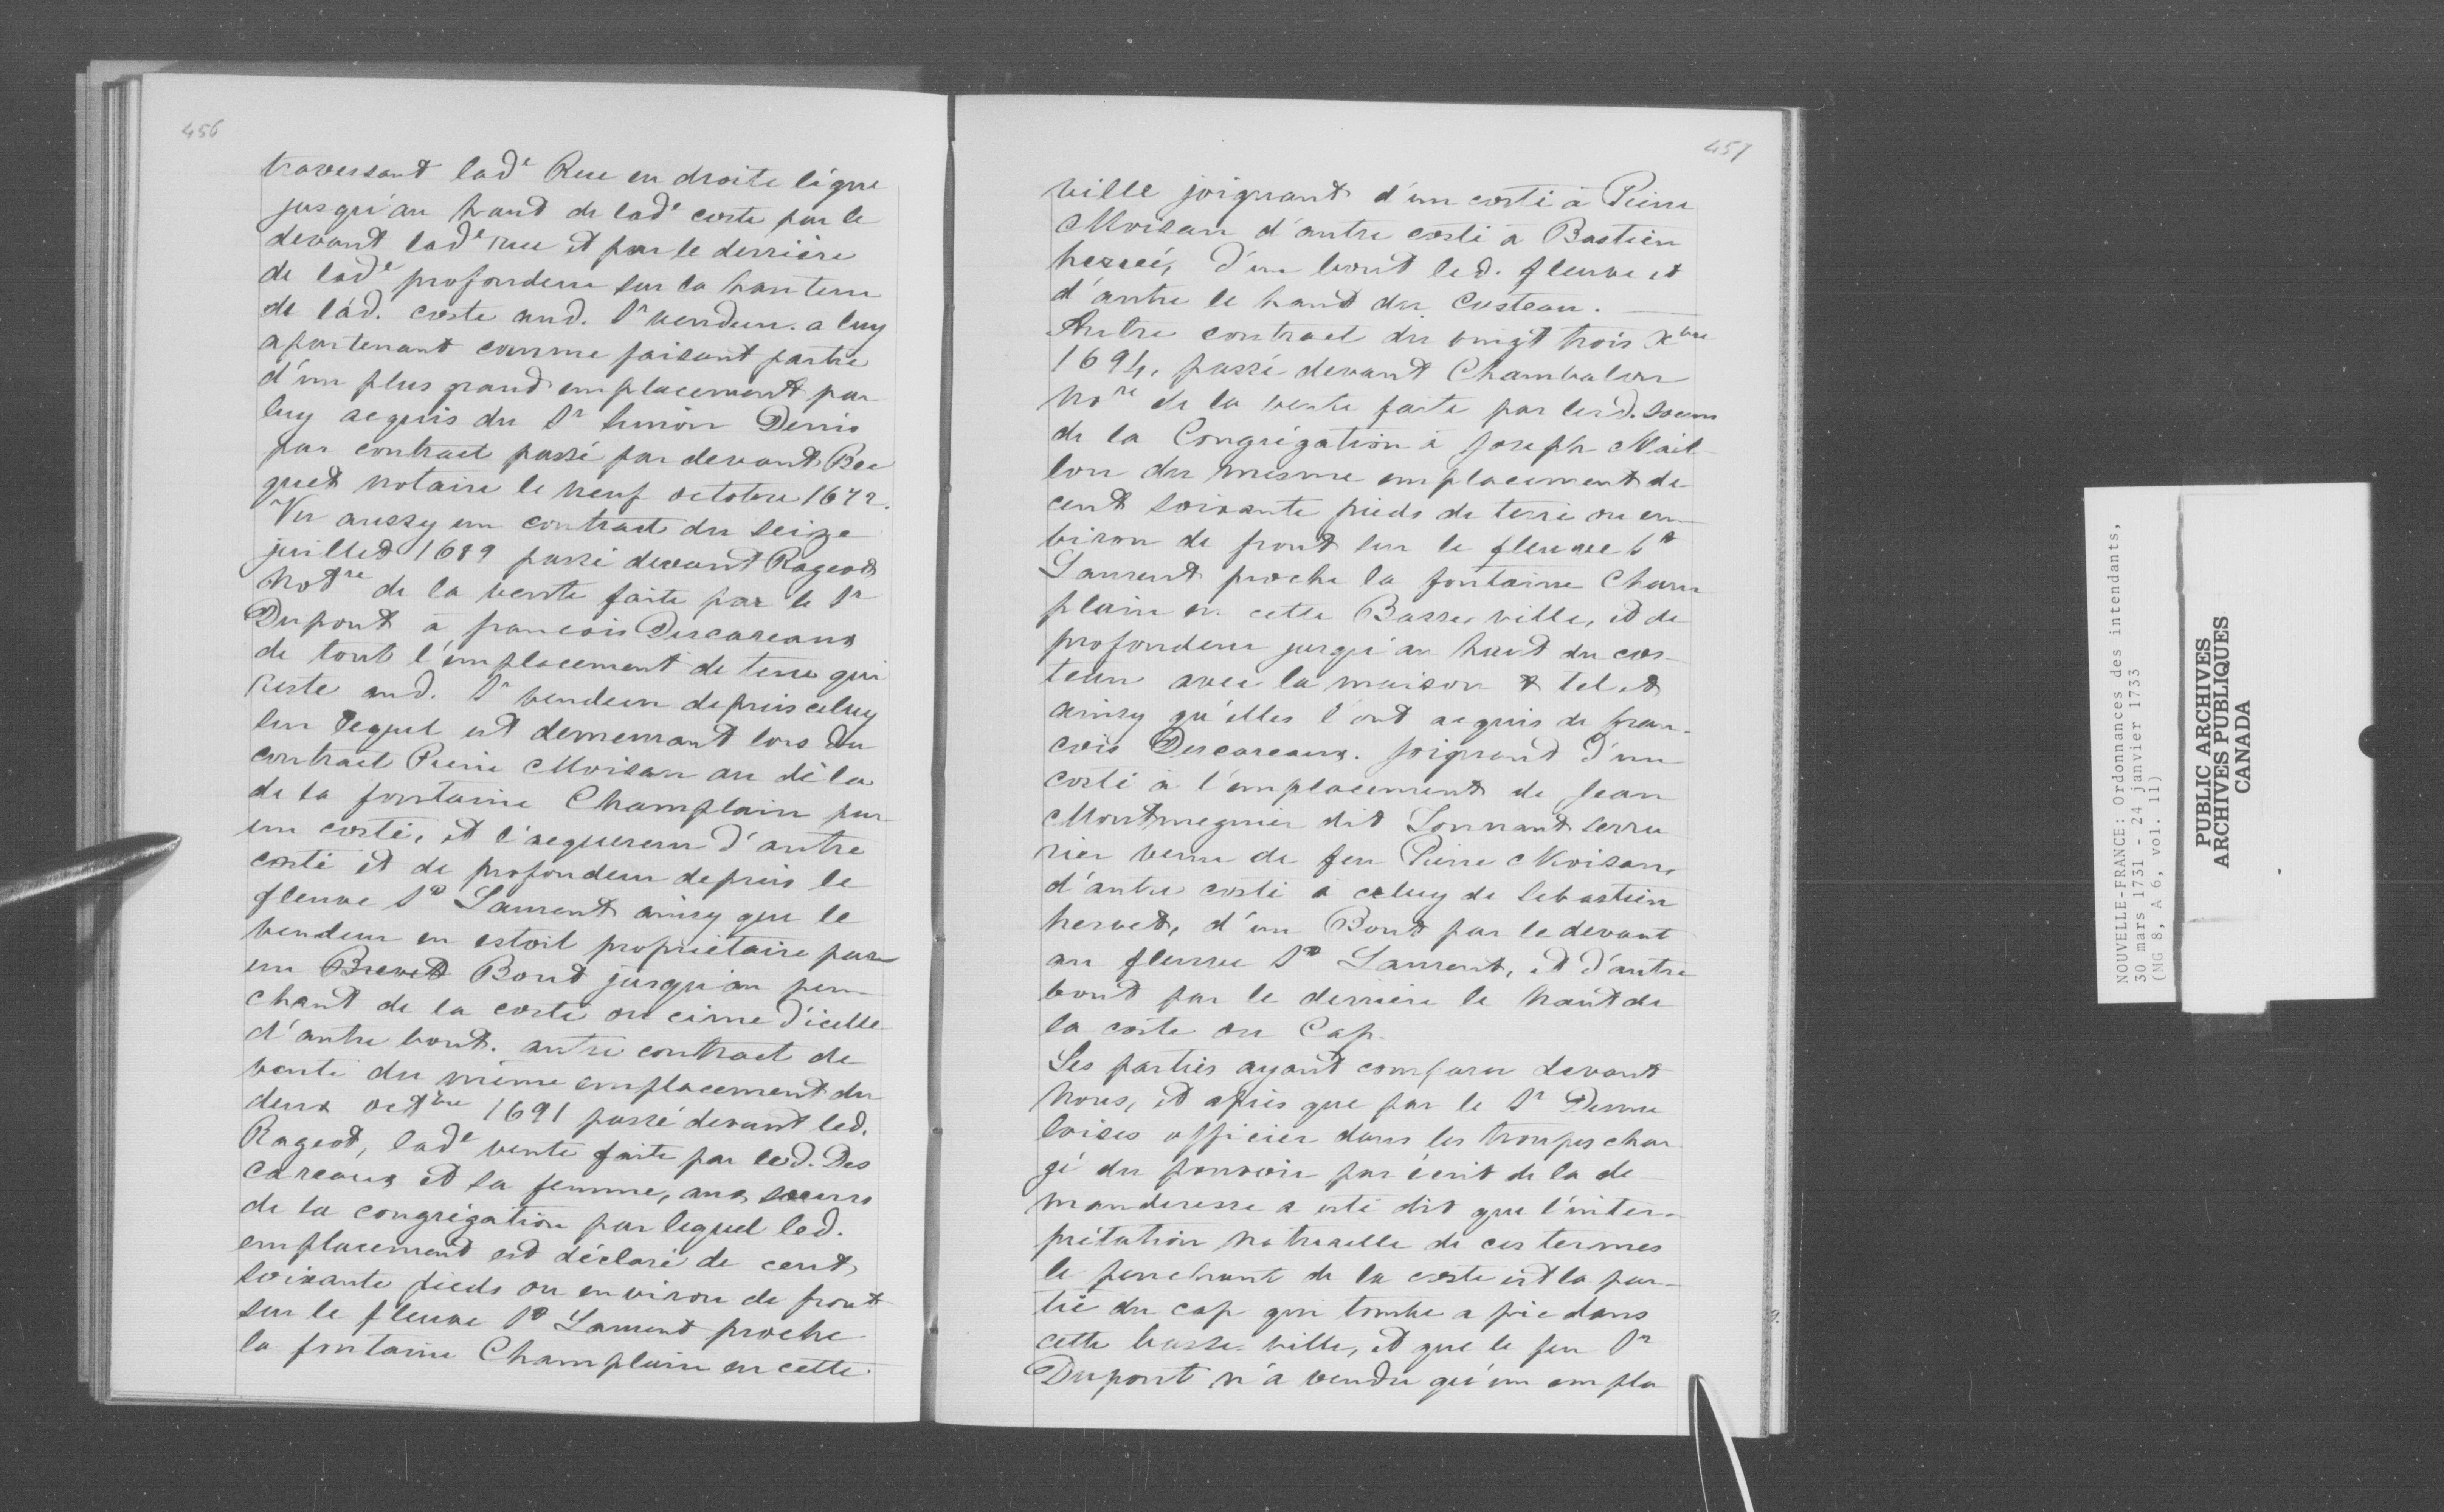 456
traversant lad.e Rue en droite ligne
jusqu'au haut de lad.e coste par le
devant lad.e rue et par le derrière
de lad.e profondeur sur la hauteur
de lad. coste aud. Sr vendeur. a luy
apartenant comme faisant partie
d'un plus grand emplacement par
luy acquis du Sr Simon Denis
par contract passé par devant Bec
quet notaire le neuf octobre 1672.
Vu aussy un contract du seize
juillet 1689 passé devant Rageot
Notre de la vente faite par le Sr
Dupont à françois Descareaux
de tout l'emplacement de terre qui
reste aud. Sr vendeur depuis celuy
sur lequel est demeurant lors du
contract Pierre Moisan au dela
de la fontaine Champlain par
un costé, et l'acquereur d'autre
costé et de profondeur depuis le
fleuve St Laurent ainsy que le
vendeur en estoit propriétaire par
un Brevet Bout jusqu'au pen-
chant de la coste ou cime d'icelle
d'autre bout. autre contract de
vente du même emplacement du
deux octbre 1691 passé devant led.
Rageot, lad.e vente faite par led. Des
careaux et sa femme, aux soeurs
de la congrégation par lequel led.
emplacement est déclaré de cent
soixante pieds ou environ de front
sur le fleuve St Laurent proche
la fontaine Champlain en cette
457
ville joignant d'un costé à Pierre
Moisan d'autre costé à Bastien
d'un bout led. fleuve et
d'autre le haut du Costeau.
Autre contract du vingt trois Xbre
1694, passé devant Chambalon
Nore de la vente faite par lesd. soeurs
de la Congrégation à Joseph Mail-
lou du mesme emplacement de
cent soixante pieds de terre ou en-
viron de front sur le fleuve St
Laurent proche la fontaine Cham
plain en cette Basse ville, et de
profondeur jusqu'au haut du cos-
teau avec la maison & tel et
ainsy qu'elles l'ont acquis de fran-
cois Descareaux. Joignant d'un
costé à l'emplacement de Jean
Montmegnier dit Lonnant serru
rier venu de feu Pierre Moisan,
d'autre costé à celuy de Sebastien
hervet, d'un Bout par le devant
au fleuve St Laurent, et d'autre
bout par le derrière le haut de
la coste ou Cap.
Les parties ayant comparu devant
Nous, et après que par le Sr Desme
loises officier dans les troupes char
gé du pouvoir par écrit de la de-
manderesse a esté dit que l'inter-
prétation naturelle de ces termes
le penchant de la coste est la par-
tie du cap qui tombe a pic dans
cette basse ville, et que le feu Sr
Dupont n'a vendu qu'un empla
NOUVELLE-FRANCE: Ordonnances des intendants,
30 mars 1731 - 24 janvier 1733
(MG 8, A 6, vol. 11)
PUBLIC ARCHIVES
ARCHIVES PUBLIQUES
CANADA